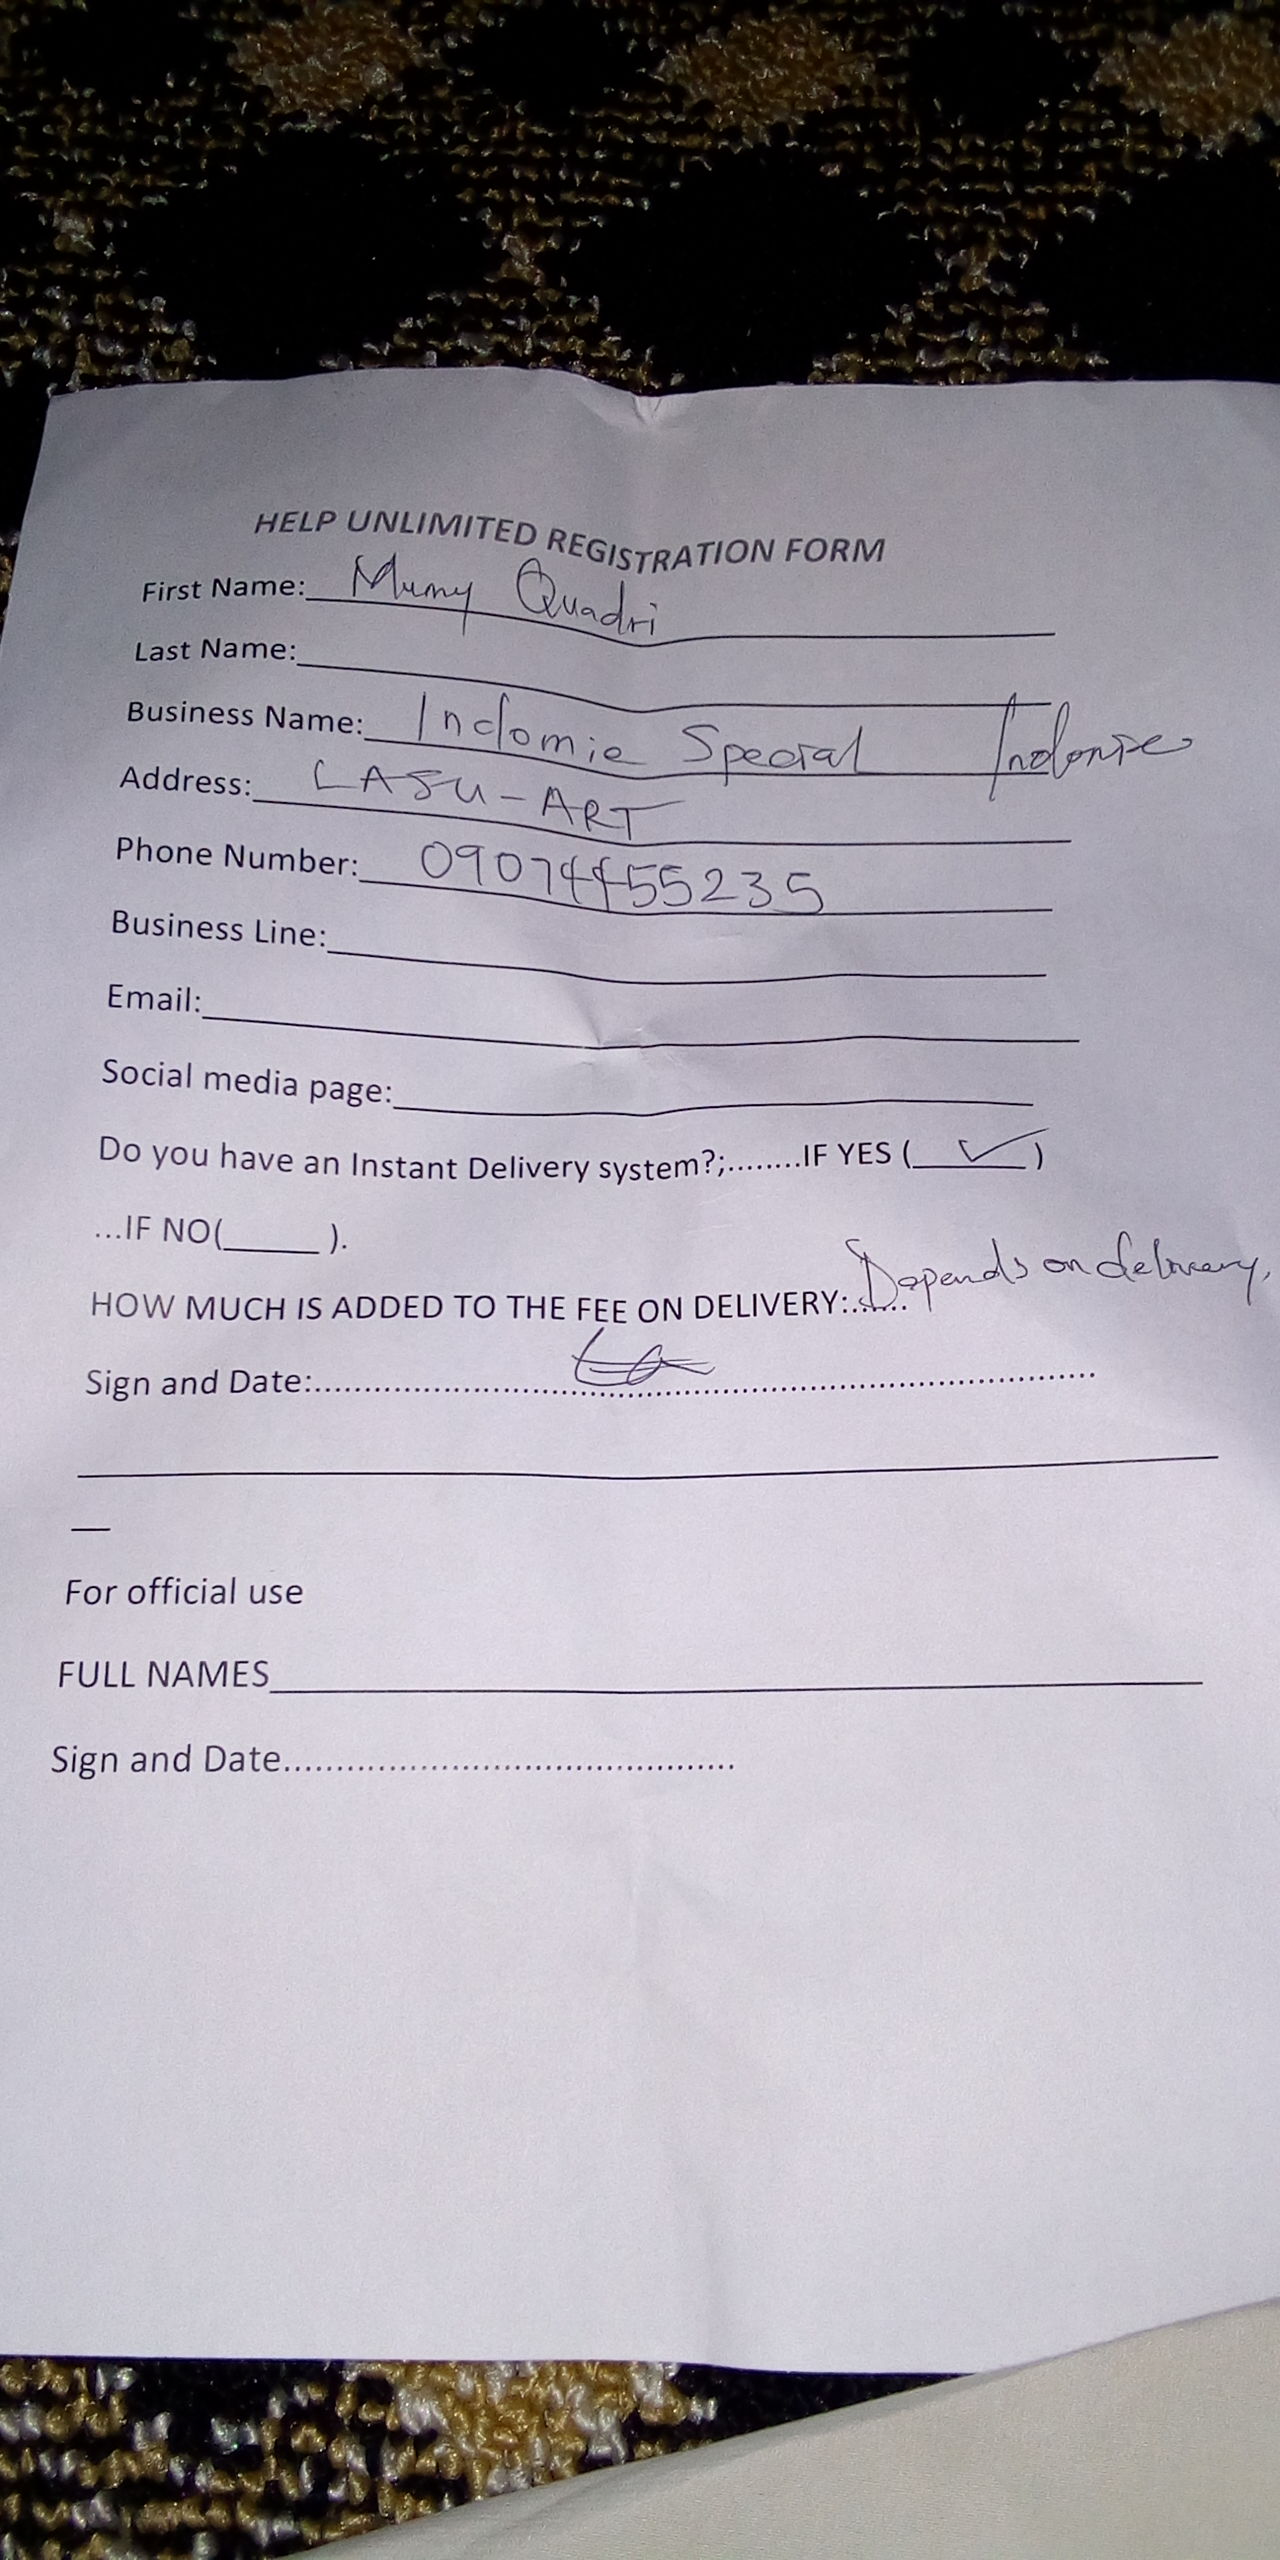 HELP UNLIMITED REGISTRATION FORM
First Name: Mumy Quadri
Last Name:
Business Name: Indomie Special Indomie
Address: LASU-ART
Phone Number: 09074455235
Business Line:
Email:
Social media page:
Do you have an Instant Delivery system?;........IF YES ( ✓ )
...IF NO(_____ ).
HOW MUCH IS ADDED TO THE FEE ON DELIVERY:...... Depends on delivery,
Sign and Date:
For official use
FULL NAMES
Sign and Date